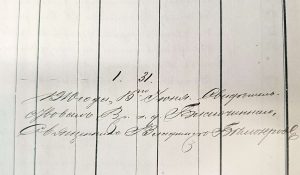 1. 31.
1910 года, 15го Июня. Свидетель-
ствовалъ Вр. и. д. Благочиннаго,
Священникъ